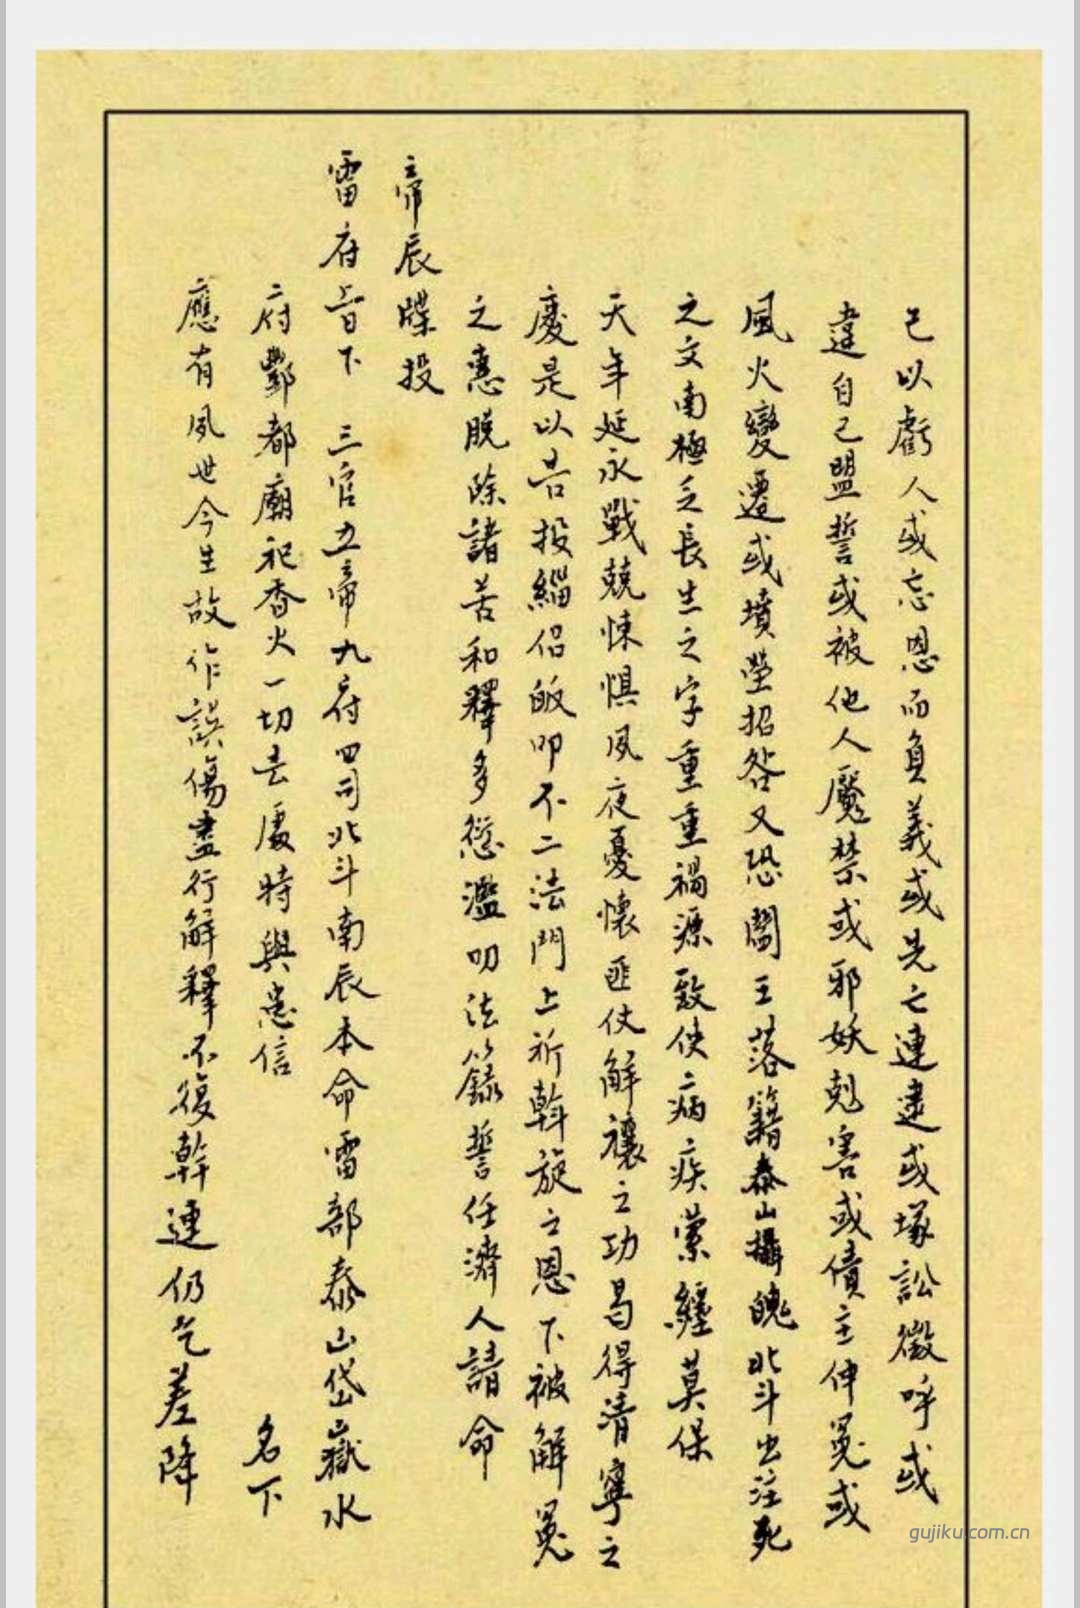 己以虧人或忘恩而負義或先亡連逮或塚訟徵呼或
違自己盟誓或被他人魘禁或邪妖剋害或債主伸冤或
風火變遷或墳塋招咎又恐閻王落籍泰山攝魄北斗出注死
之文南極乏長生之字重重禍源致使病疾縈纏莫保
天年延永戰兢悚惧夙夜憂懷匪仗解禳之功曷得清寧之
慶是以告投緇侣皈叩不二法門上祈斡旋之恩下被解冤
之恵脫除諸苦和釋多愆濫叨法籙誓任濟人請命
帝辰牒投
雷府旨下 三官五帝九府四司北斗南辰本命雷部泰山岱嶽水
府酆都廟祀香火一切去處特與恵信 名下
應有夙世今生故作誤傷盡行解釋不復幹連仍乞差降
gujiku.com.cn